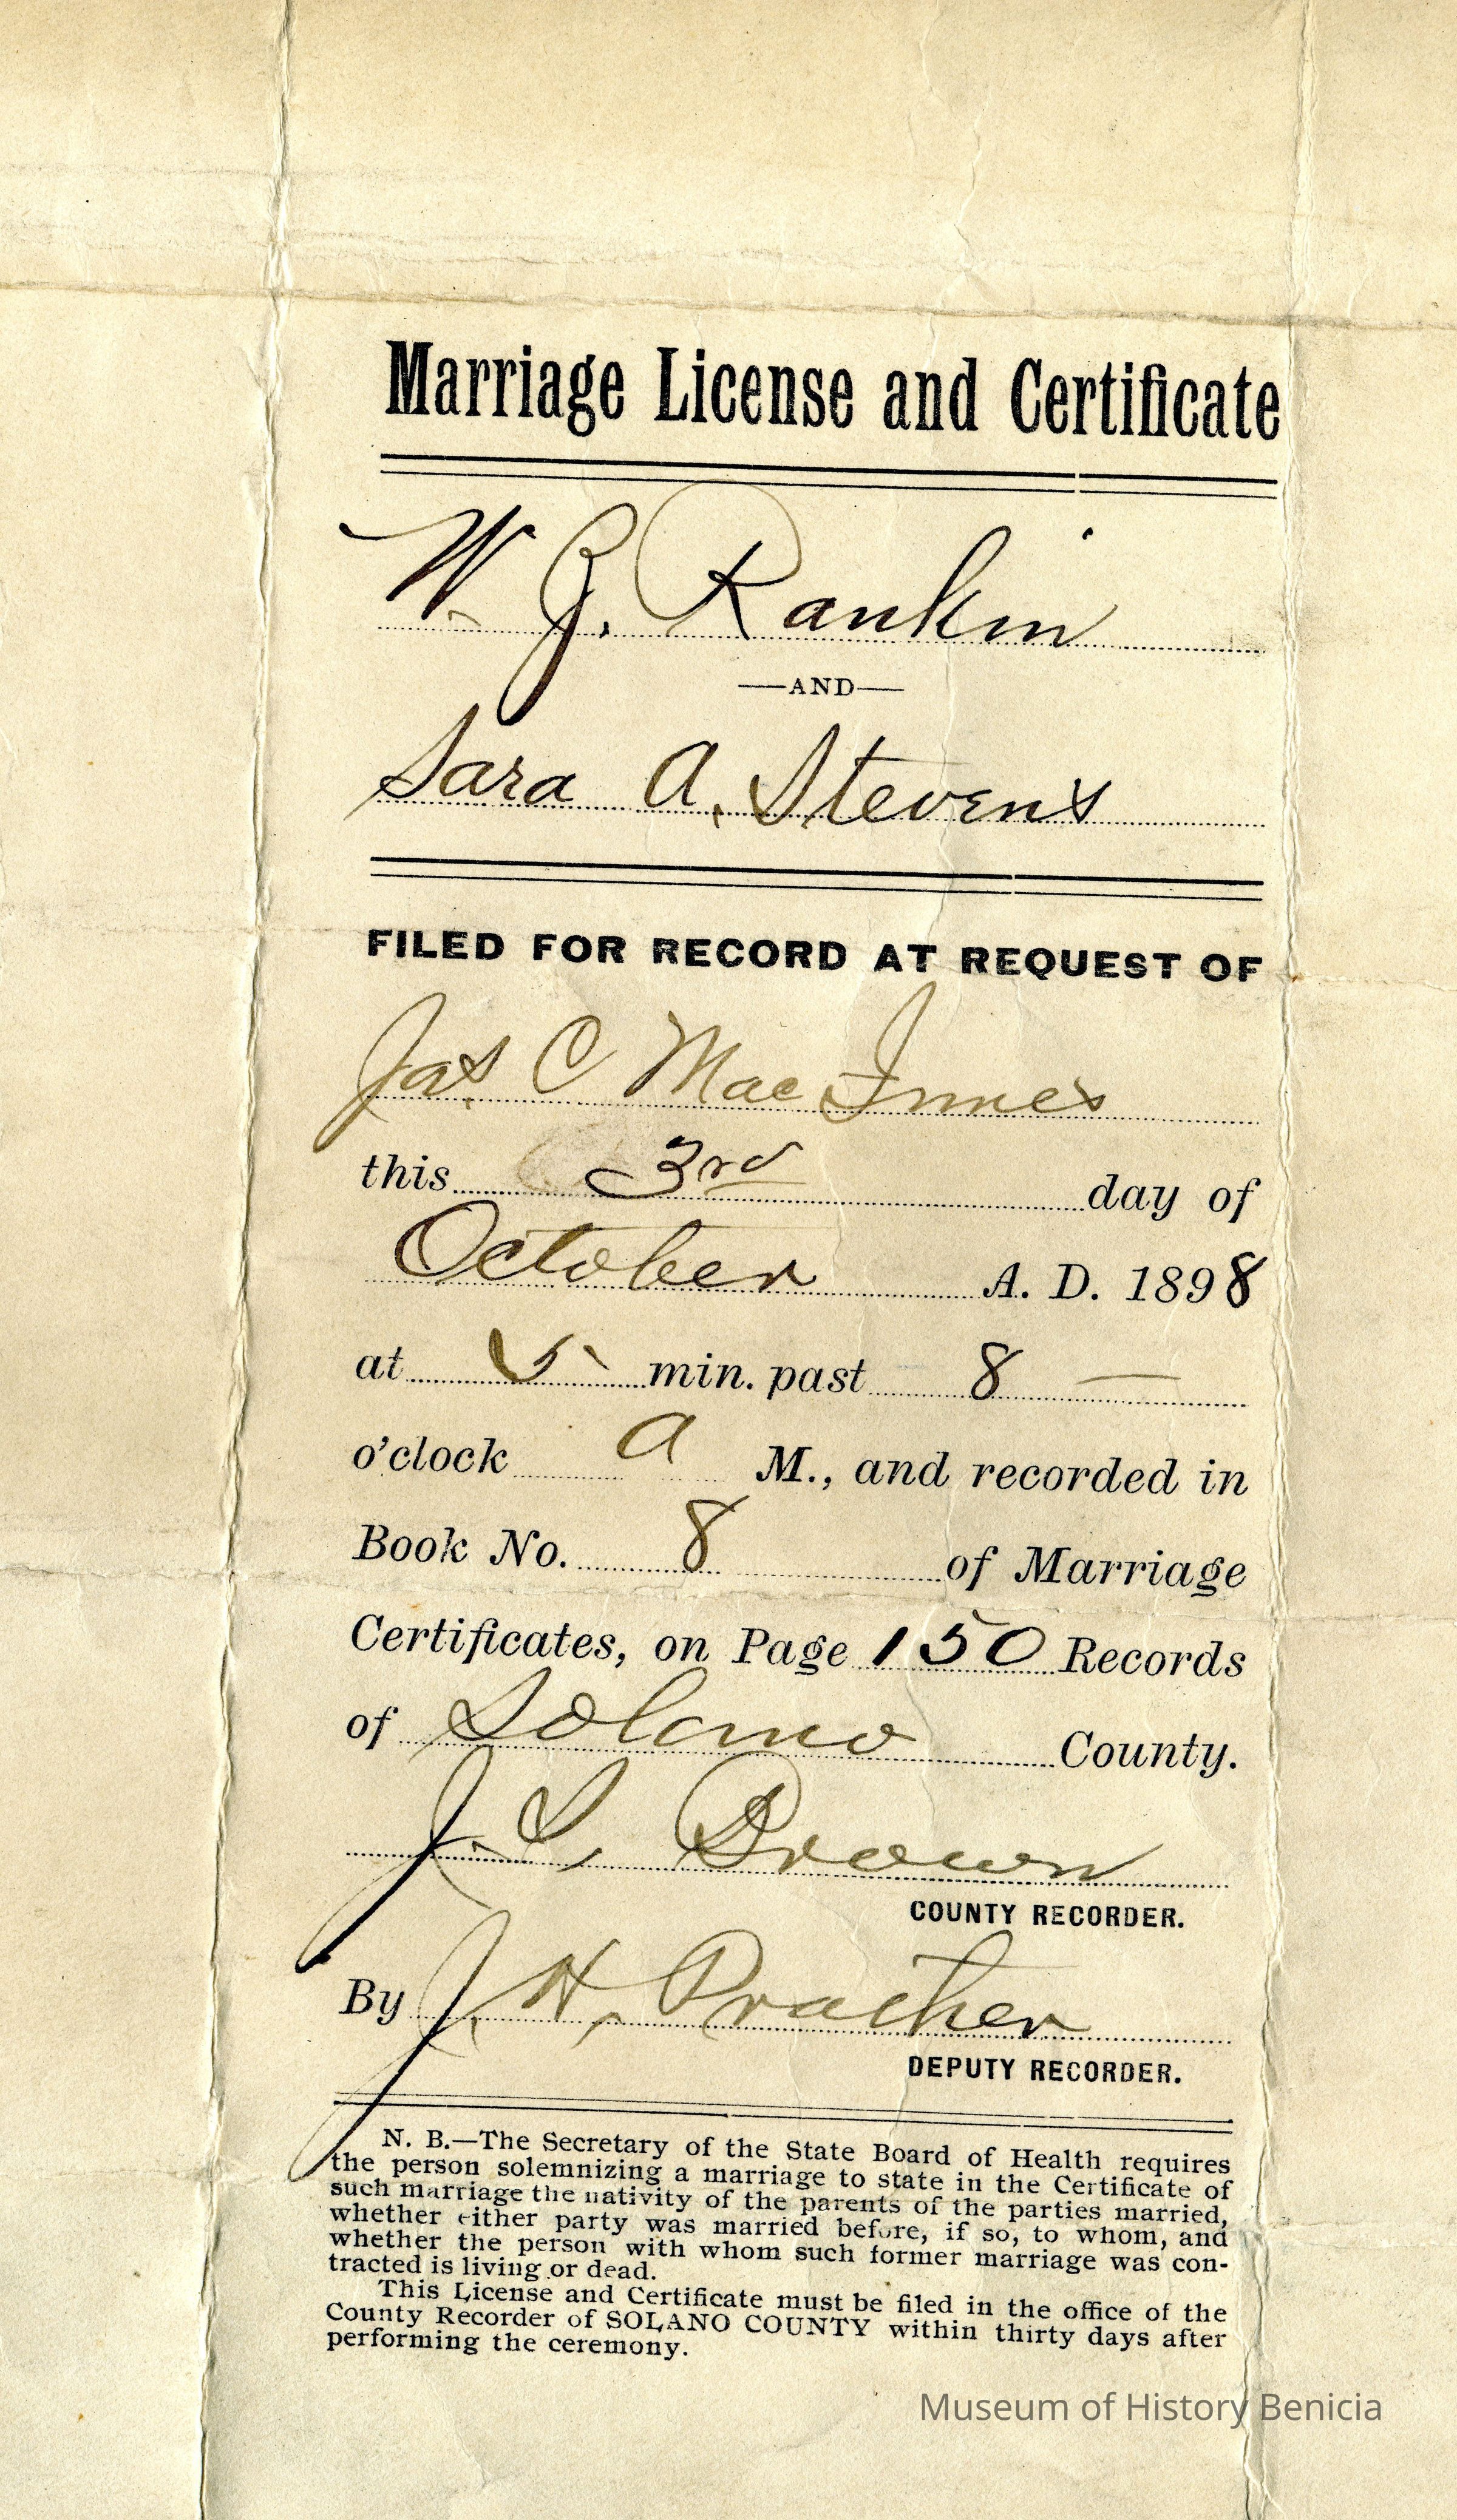 Marriage License and Certificate
W. J. Rankin
—AND—
Sara A. Stevens
FILED FOR RECORD AT REQUEST OF
Jas. C MacInnes
this 3rd day of
October A. D. 1898
at 5 min. past 8 —
o'clock A M., and recorded in
Book No. 8 of Marriage
Certificates, on Page 150 Records
of Solano County.
J. S. Brown
COUNTY RECORDER.
By J. H. Pracher
DEPUTY RECORDER.
N. B.—The Secretary of the State Board of Health requires
the person solemnizing a marriage to state in the Certificate of
such marriage the nativity of the parents of the parties married,
whether either party was married before, if so, to whom, and
whether the person with whom such former marriage was con-
tracted is living or dead.
This License and Certificate must be filed in the office of the
County Recorder of SOLANO COUNTY within thirty days after
performing the ceremony.
Museum of History Benicia